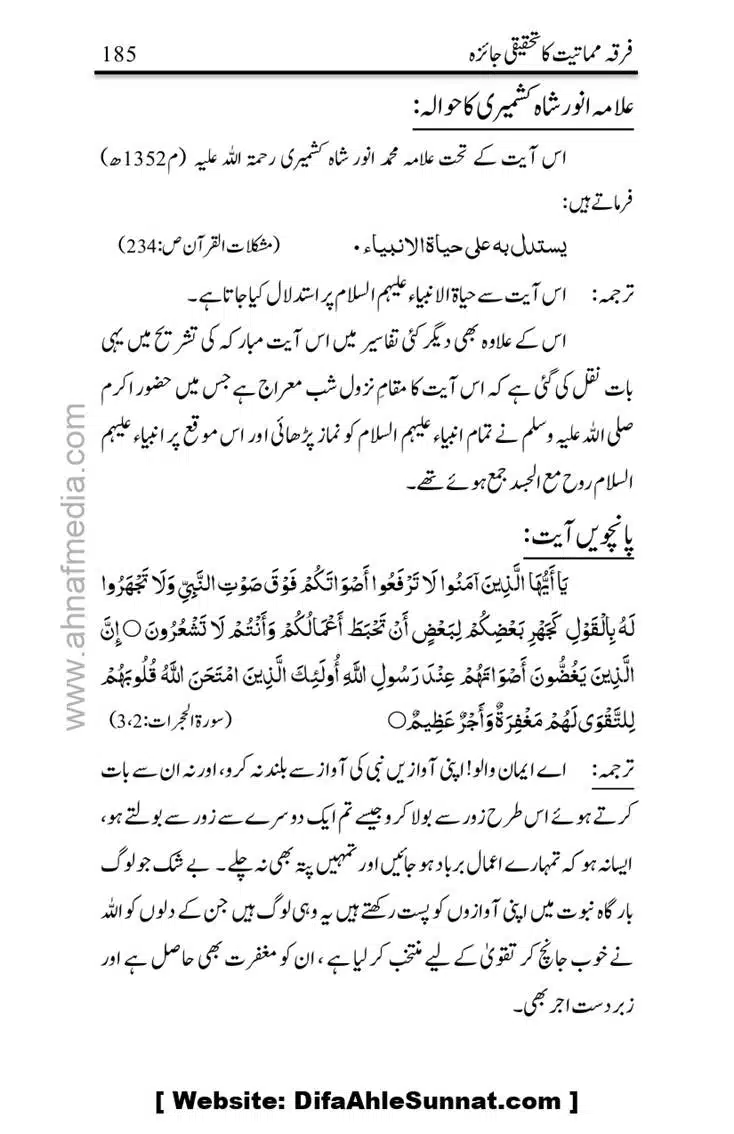 فرقہ مماتیت کا تحقیقی جائزہ 185
علامہ انور شاہ کشمیری کا حوالہ:
اس آیت کے تحت علامہ محمد انور شاہ کشمیری رحمۃ اللہ علیہ (م1352ھ)
فرماتے ہیں:
یستدل بہ علی حیاۃ الانبیاء. (مشکلات القرآن ص:234)
ترجمہ: اس آیت سے حیاۃ الانبیاء علیہم السلام پر استدلال کیا جاتا ہے۔
اس کے علاوہ بھی دیگر کئی تفاسیر میں اس آیت مبارکہ کی تشریح میں یہی
بات نقل کی گئی ہے کہ اس آیت کا مقامِ نزول شب معراج ہے جس میں حضور اکرم
صلی اللہ علیہ وسلم نے تمام انبیاء علیہم السلام کو نماز پڑھائی اور اس موقع پر انبیاء علیہم
السلام روح مع الجسد جمع ہوئے تھے۔
پانچویں آیت:
يَا أَيُّهَا الَّذِينَ آمَنُوا لَا تَرْفَعُوا أَصْوَاتَكُمْ فَوْقَ صَوْتِ النَّبِيِّ وَلَا تَجْهَرُوا
لَهُ بِالْقَوْلِ كَجَهْرِ بَعْضِكُمْ لِبَعْضٍ أَنْ تَحْبَطَ أَعْمَالُكُمْ وَأَنْتُمْ لَا تَشْعُرُونَ ○ إِنَّ
الَّذِينَ يَغُضُّونَ أَصْوَاتَهُمْ عِنْدَ رَسُولِ اللَّهِ أُولَئِكَ الَّذِينَ امْتَحَنَ اللَّهُ قُلُوبَهُمْ
لِلتَّقْوَى لَهُمْ مَغْفِرَةٌ وَأَجْرٌ عَظِيمٌ ○ (سورۃ الحجرات:3،2)
ترجمہ: اے ایمان والو! اپنی آوازیں نبی کی آواز سے بلند نہ کرو، اور نہ ان سے بات
کرتے ہوئے اس طرح زور سے بولا کرو جیسے تم ایک دوسرے سے زور سے بولتے ہو،
ایسا نہ ہو کہ تمہارے اعمال برباد ہو جائیں اور تمہیں پتہ بھی نہ چلے۔ بے شک جو لوگ
بارگاہ نبوت میں اپنی آوازوں کو پست رکھتے ہیں یہ وہی لوگ ہیں جن کے دلوں کو اللہ
نے خوب جانچ کر تقویٰ کے لیے منتخب کر لیا ہے، ان کو مغفرت بھی حاصل ہے اور
زبردست اجر بھی۔
www.ahnafmedia.com
[ Website: DifaAhleSunnat.com ]